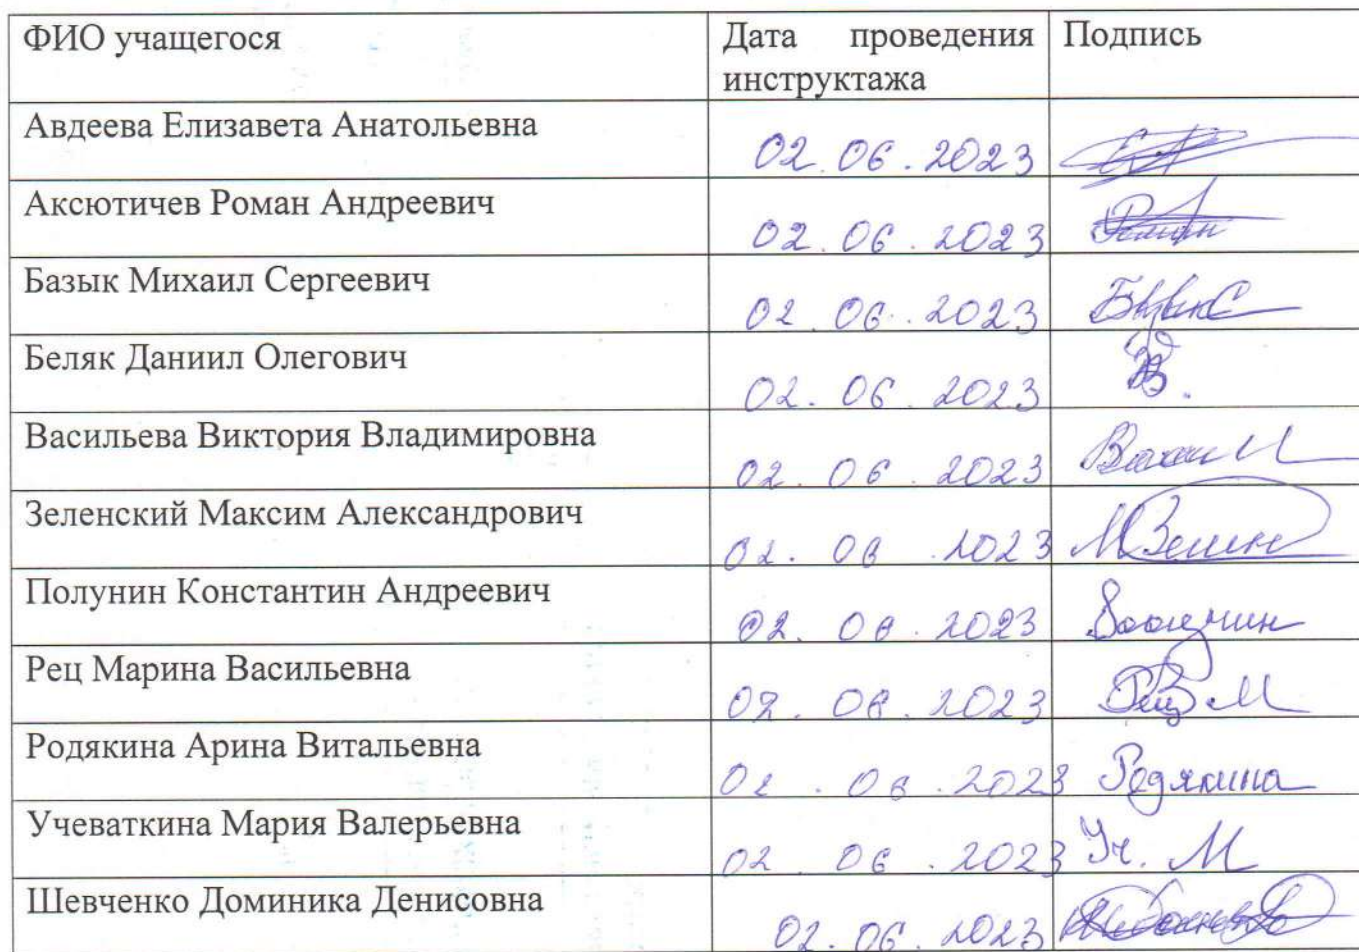 ФИО учащегося
Дата проведения инструктажа
Подпись
Авдеева Елизавета Анатольевна
02.06.2023
Аксютичев Роман Андреевич
02.06.2023
Базык Михаил Сергеевич
02.06.2023
Беляк Даниил Олегович
02.06.2023
Васильева Виктория Владимировна
02.06.2023
Зеленский Максим Александрович
02.06.2023
Полунин Константин Андреевич
02.06.2023
Рец Марина Васильевна
02.06.2023
Рец М
Родякина Арина Витальевна
02.06.2023 Родякина
Учеваткина Мария Валерьевна
02.06.2023 Уч. М
Шевченко Доминика Денисовна
02.06.2023